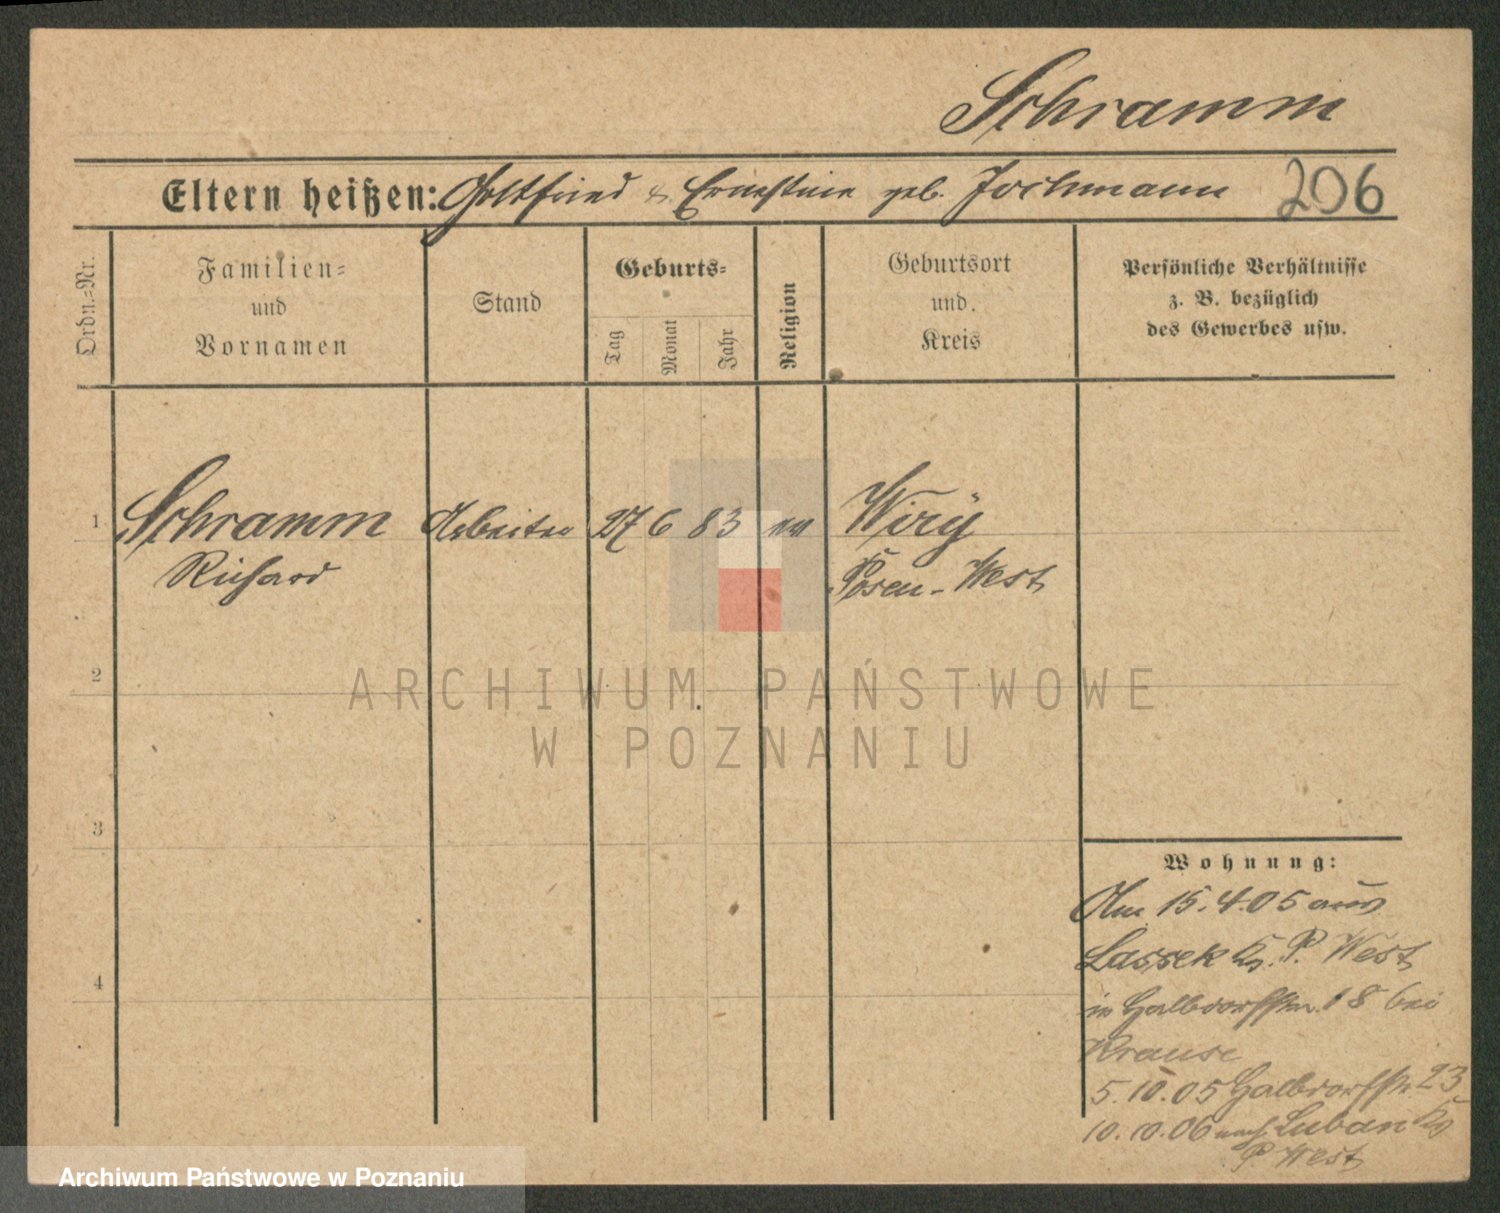 Schramm
Eltern heißen: Gottfried & Ernestine geb. Jochmann 206
Ordn.-Nr.
Familien- und Vornamen
Stand
Geburts-
Tag
Monat
Jahr
Religion
Geburtsort und Kreis
Persönliche Verhältnisse
z. B. bezüglich
des Gewerbes usw.
1 Schramm Arbeiter 27 6 83 ev Wiry
Richard Posen-West
2
3
4
Wohnung:
Am 15.4.05 aus
Lassek Ks. P. West
in Halbdorfstr. 18 bei
Krause
5.10.05 Halbdorfstr 23
10.10.06 nach Luban Ks
P West
ARCHIWUM PAŃSTWOWE
W POZNANIU
Archiwum Państwowe w Poznaniu